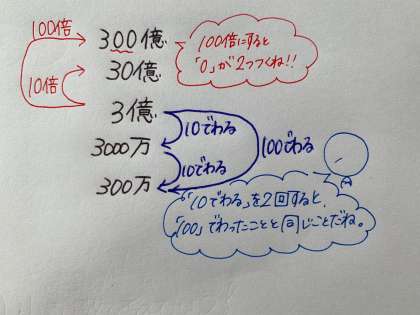 100倍
300億
100倍にすると
「0」が2つつくね!!
30億
10倍
3億
10でわる
100でわる
3000万
10でわる
300万
「10でわる」を2回すると、
「100」でわったことと同じことだね。